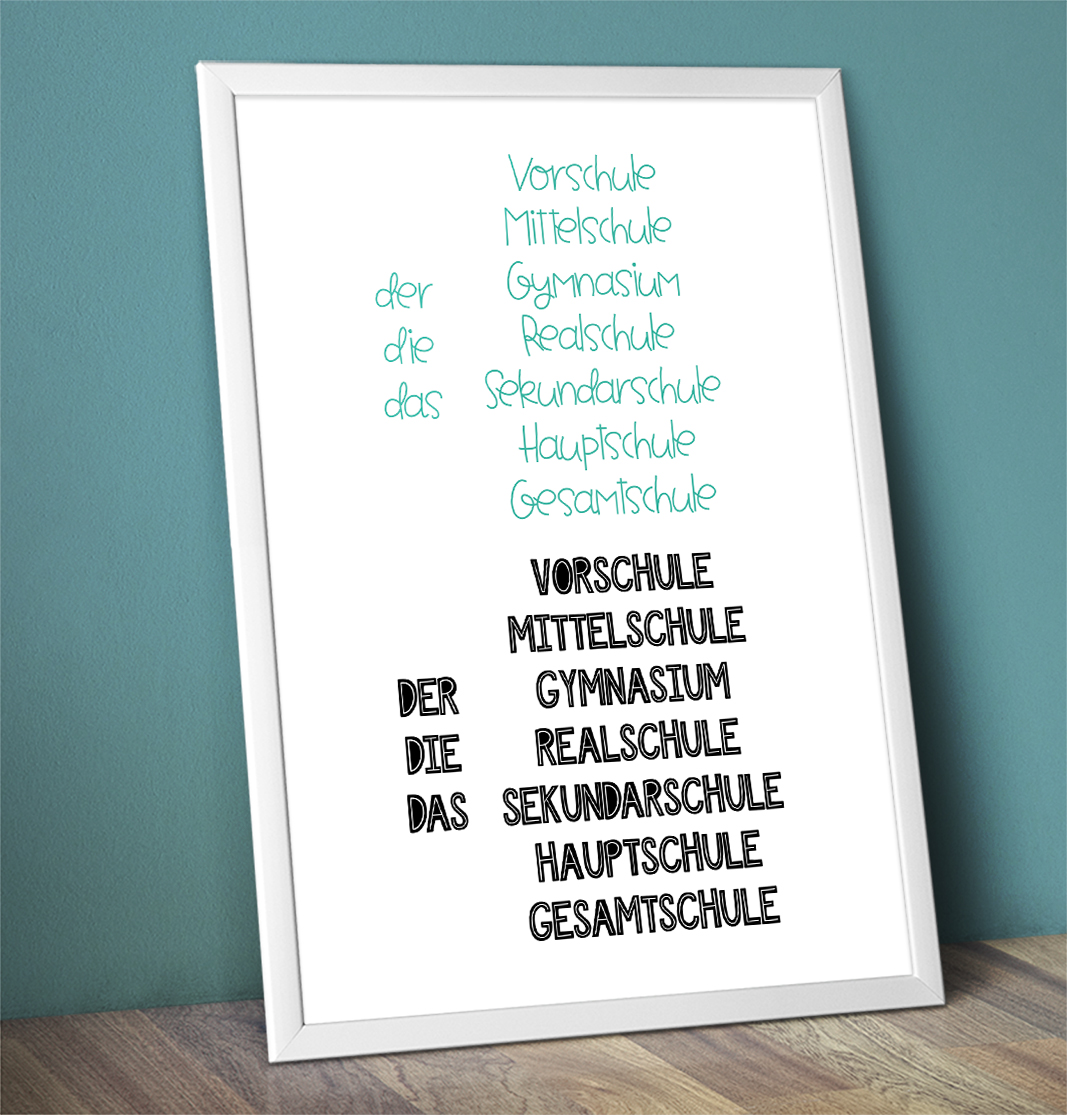 der
die
das
Vorschule
Mittelschule
Gymnasium
Realschule
Sekundarschule
Hauptschule
Gesamtschule
DER
DIE
DAS
VORSCHULE
MITTELSCHULE
GYMNASIUM
REALSCHULE
SEKUNDARSCHULE
HAUPTSCHULE
GESAMTSCHULE